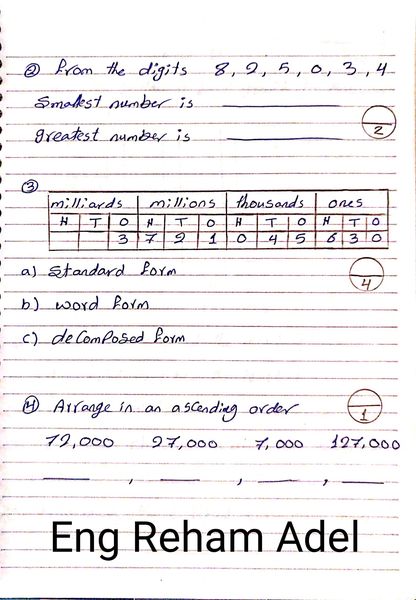 ② From the digits 8, 2, 5, 0, 3, 4
Smallest number is
greatest number is
2
③
milliards millions thousands ones
H T O H T O H T O H T O
3 7 2 1 0 4 5 6 3 0
a) Standard form
4
b) word form
c) decomposed form
④ Arrange in an ascending order
1
72,000 27,000 7,000 127,000
, , ,
Eng Reham Adel